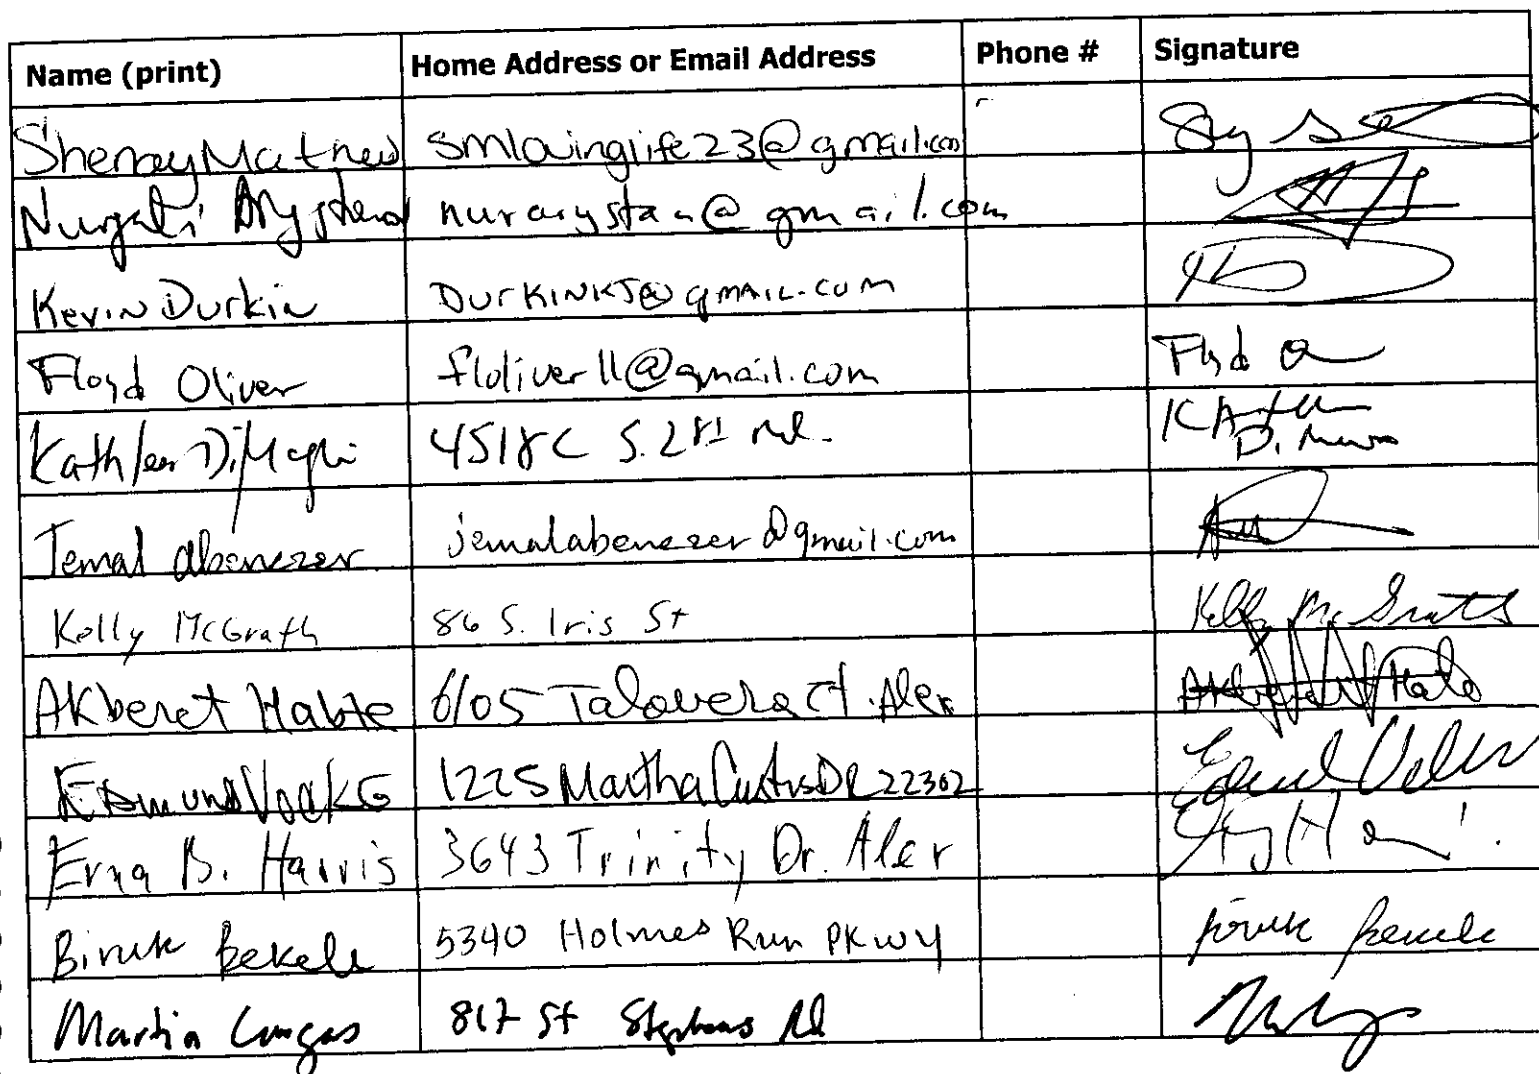 Name (print) Home Address or Email Address Phone # Signature
Sheray Mathew smlovinglife23@gmail.com
nurarystan@gmail.com
Kevin Durkin DURKINKJ@gmail.com
Floyd Oliver floliver11@gmail.com Floyd O
Kathleen 4518C S. 28th Rd.
Jemal abenezer jemalabenezer@gmail.com
Kelly McGrath 86 S. Iris St Kelly McGrath
AKberet Habte 6105 Talavera Ct. Alex
EDmund 1225 Martha Custis DR 22302
Erna B. Harris 3643 Trinity Dr. Alex
Biruk Bekele 5340 Holmes Run PKWY Biruk Bekele
Martin 817 St Stephens Rd